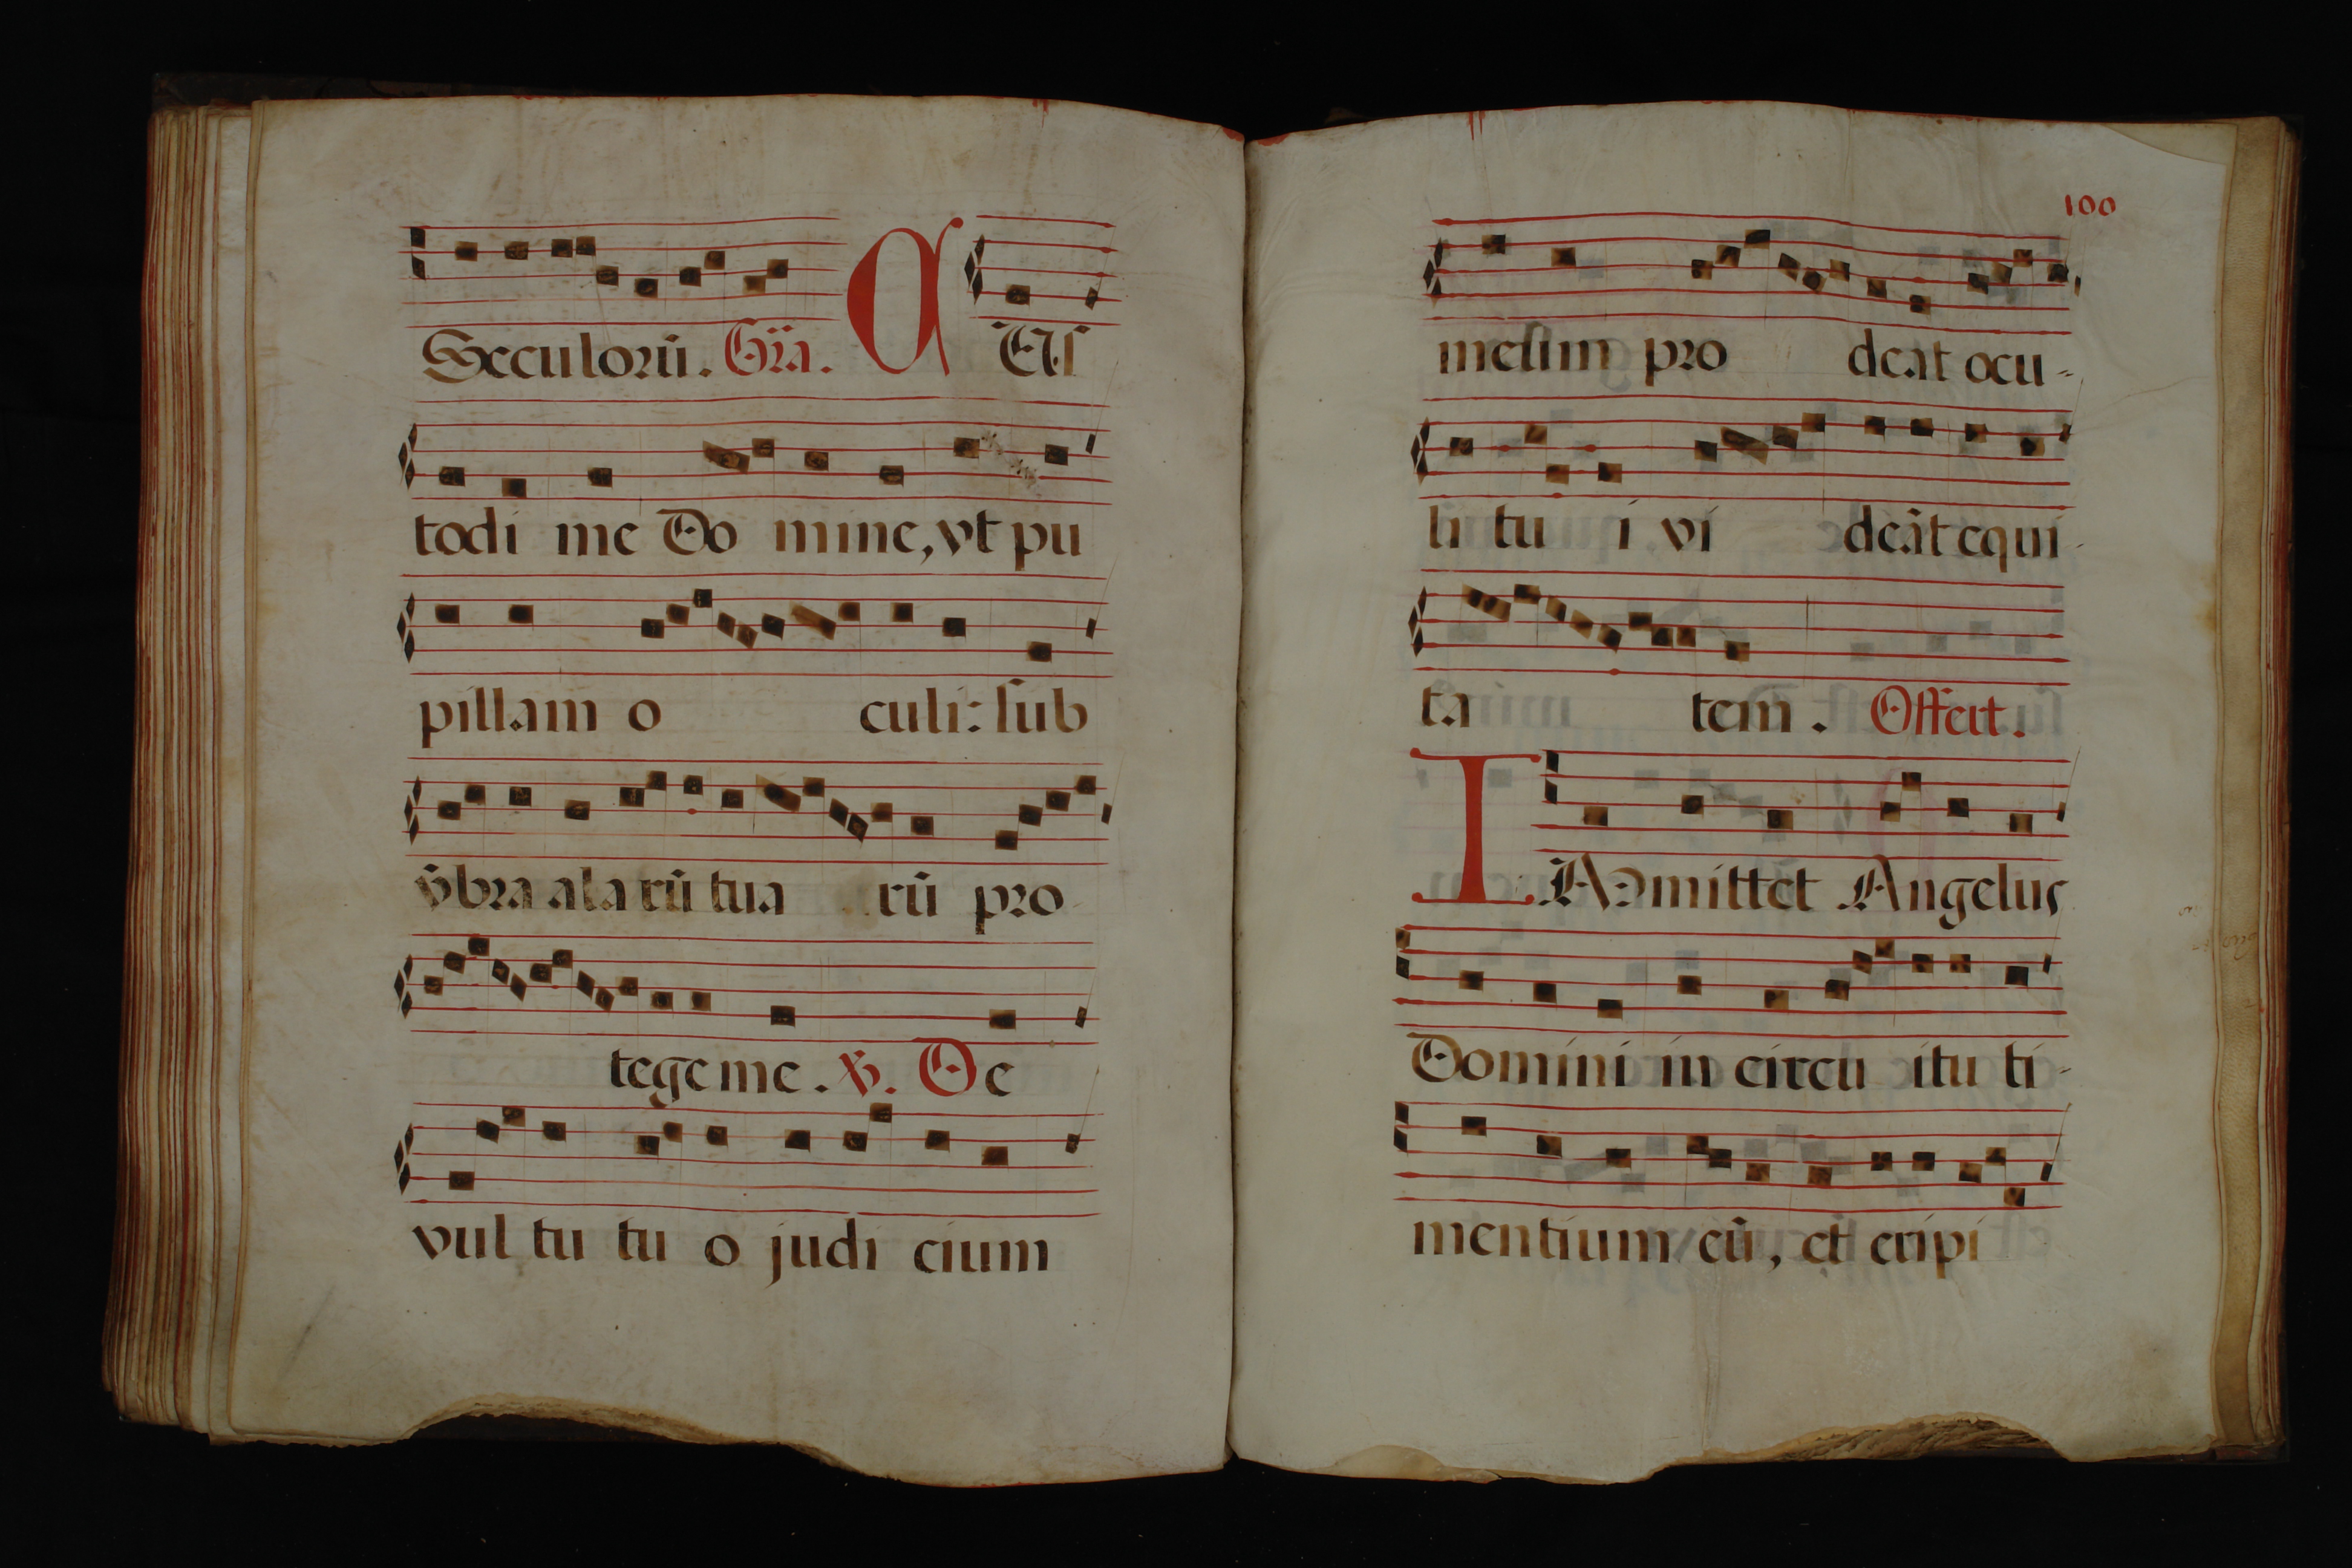 Sæculorũ. Gra. C VS
todi me Domine, vt pu
pillam o culi: sub
ṽbra alarũ tua rũ pro
tege me. ℣. De
vultu tuo judicium
100
meum pro deat ocu-
li tui vi deãt equi-
ta tem. Offert.
IMmittet Angelus
Domini in circu itu ti-
mentium eũ, et eripi